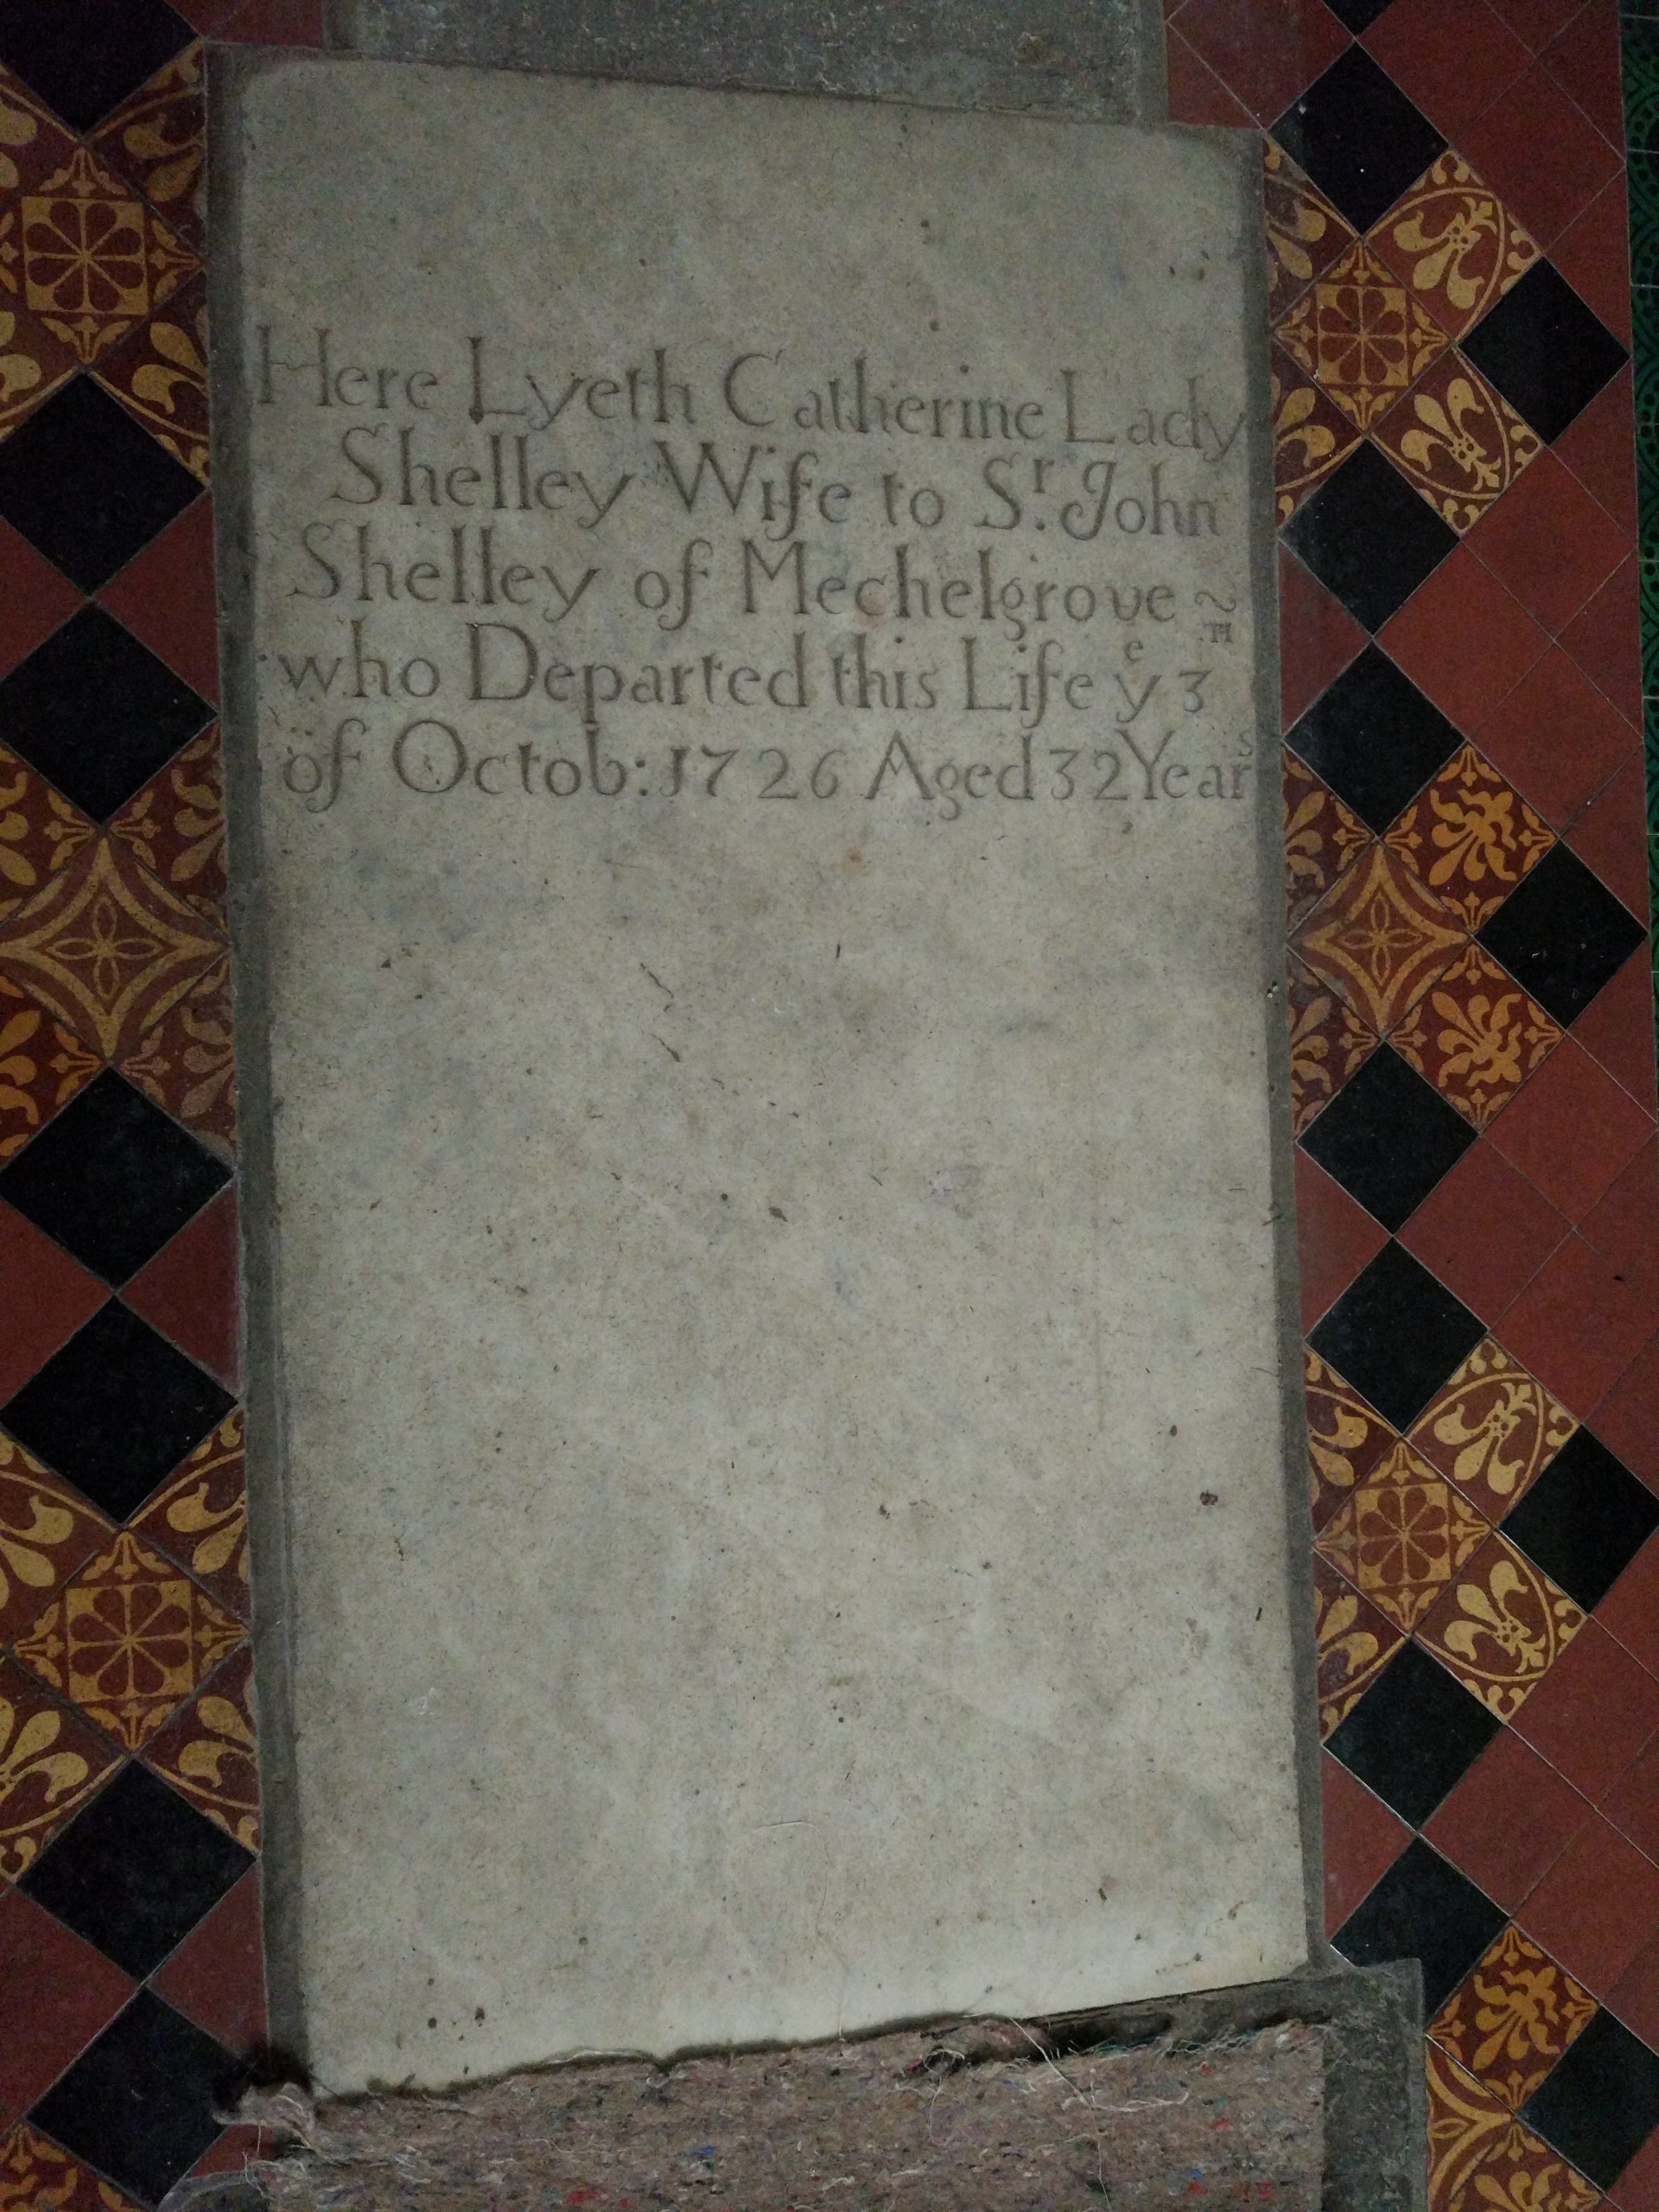 Here Lyeth Catherine Lady
Shelley Wife to Sʳ. John
Shelley of Mechelgrove
who Departed this Life yᵉ 3ᵀᴴ
of Octob: 1726 Aged 32 Yearˢ